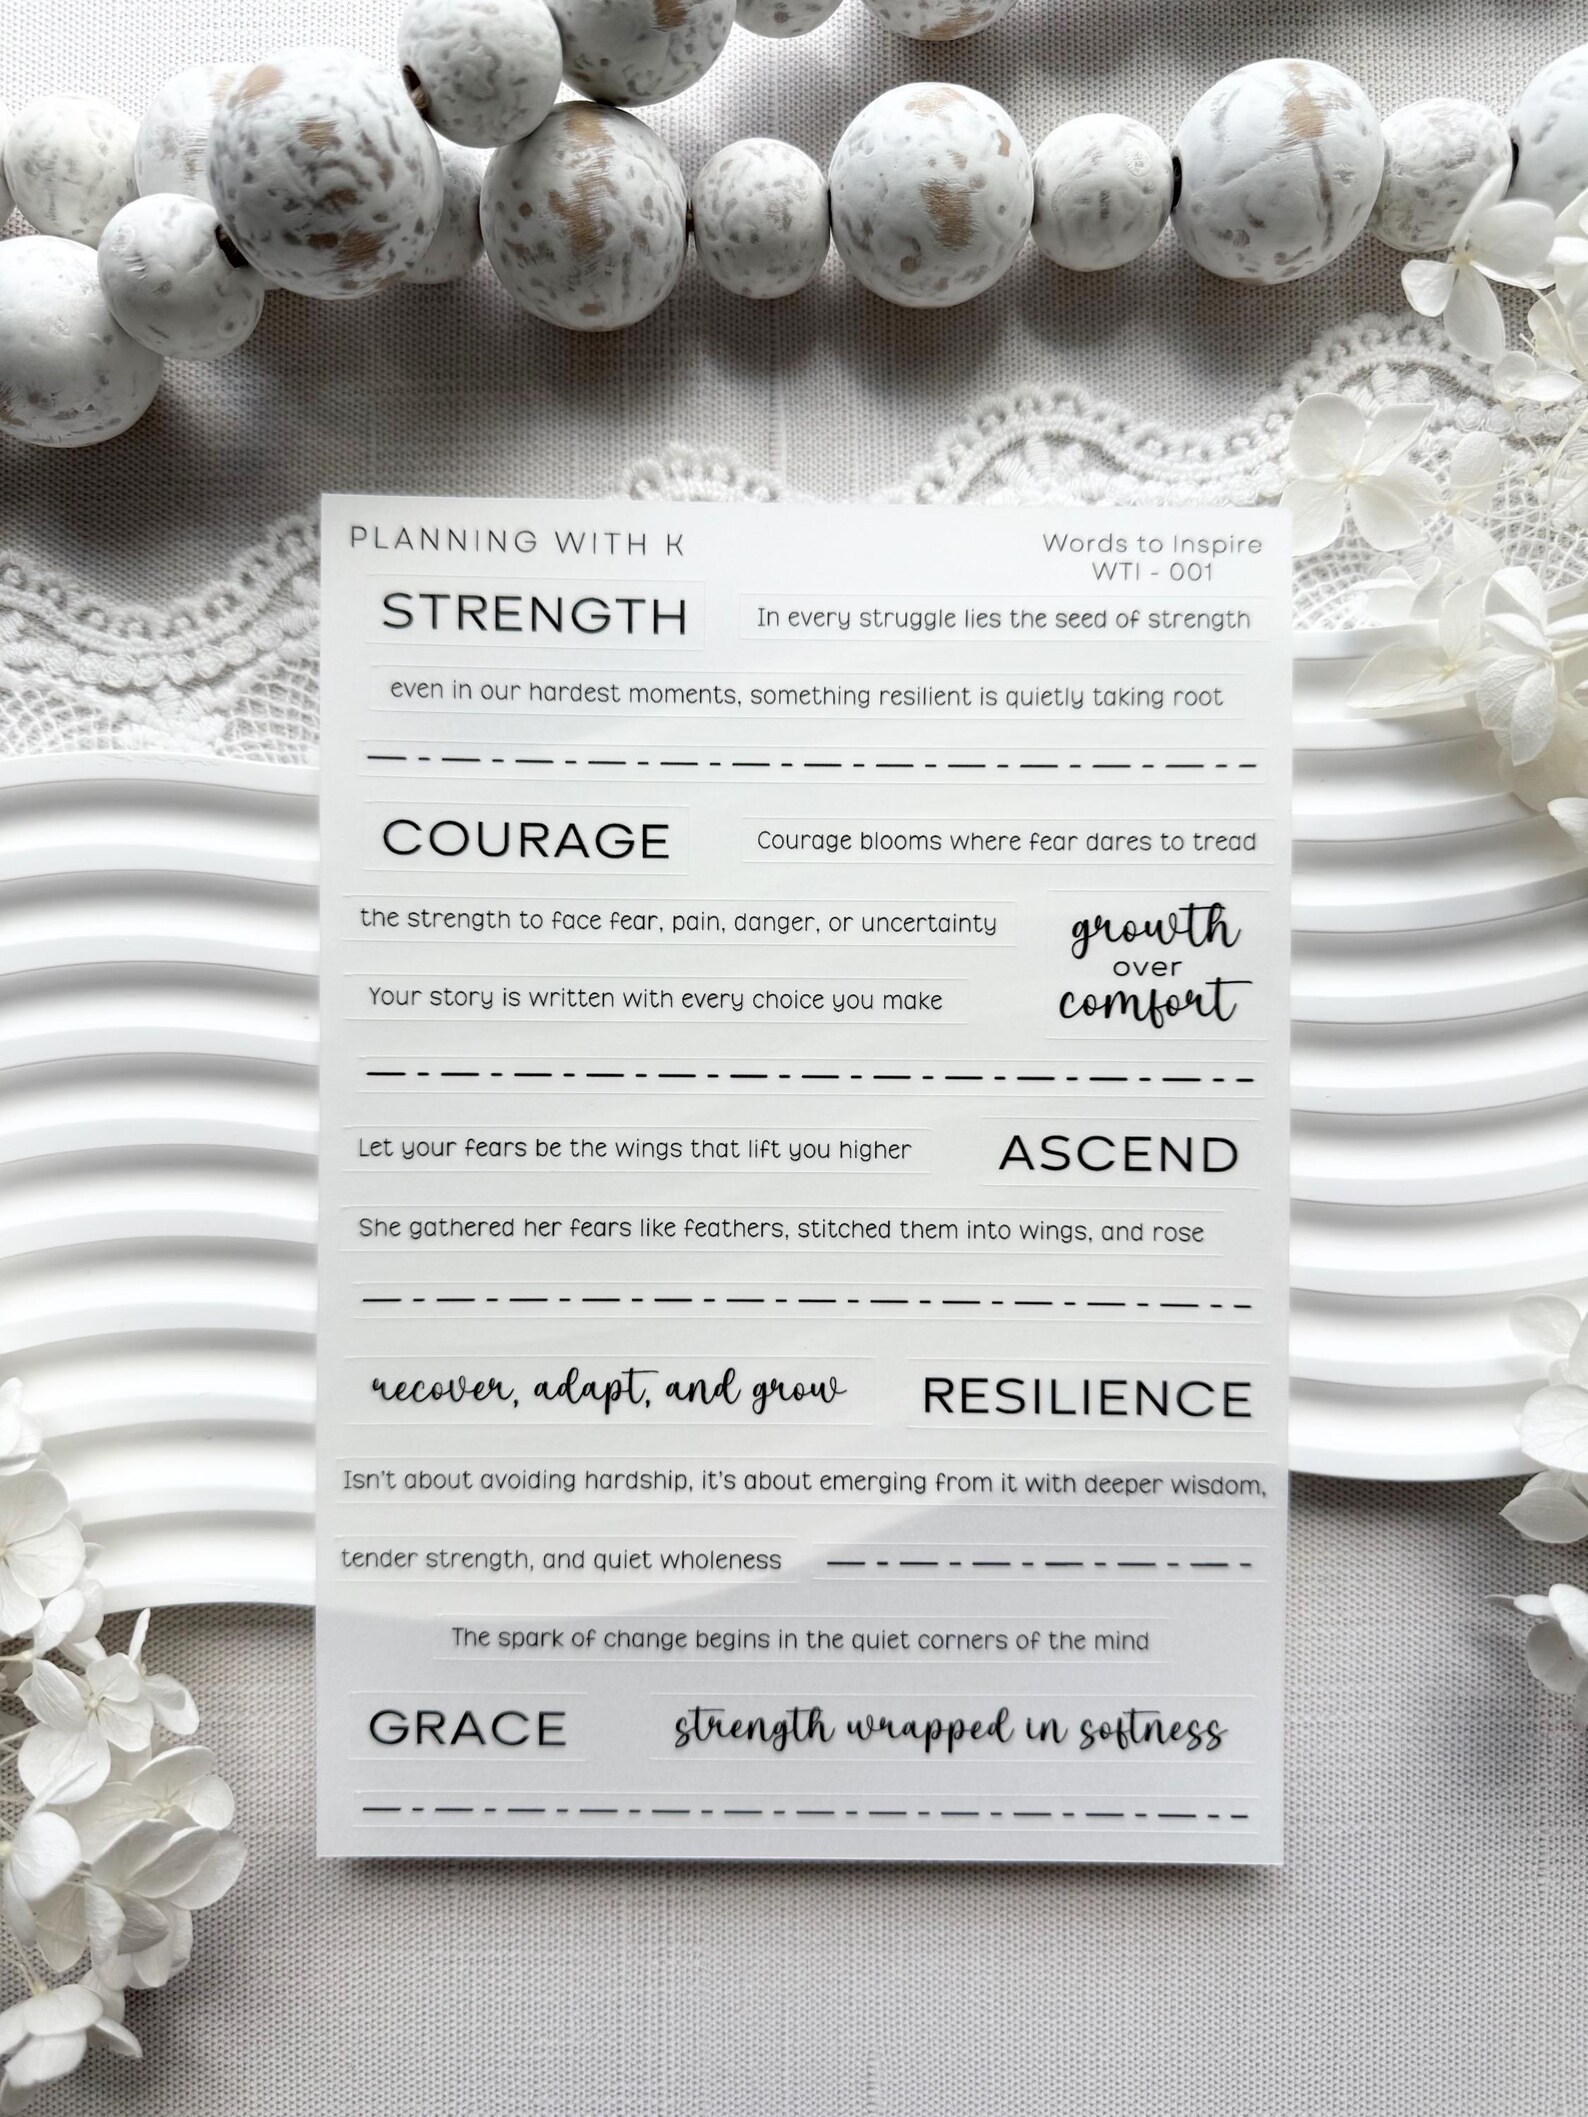 PLANNING WITH K
Words to Inspire
WTI - 001
STRENGTH
In every struggle lies the seed of strength
even in our hardest moments, something resilient is quietly taking root
COURAGE
Courage blooms where fear dares to tread
the strength to face fear, pain, danger, or uncertainty
growth
over
comfort
Your story is written with every choice you make
Let your fears be the wings that lift you higher
ASCEND
She gathered her fears like feathers, stitched them into wings, and rose
recover, adapt, and grow
RESILIENCE
Isn't about avoiding hardship, it's about emerging from it with deeper wisdom,
tender strength, and quiet wholeness
The spark of change begins in the quiet corners of the mind
GRACE
strength wrapped in softness